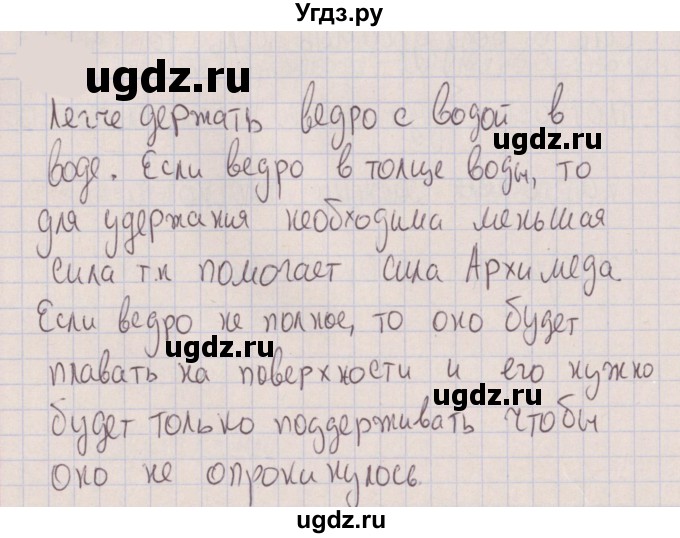 Угдз.ру
ugdz.ru
Легче держать ведро с водой в
ugdz.ru
воде. Если ведро в толще воды, то
для удержания необходима меньшая
сила т.к помогает сила Архимеда
Если ведро не полное, то оно будет
ugdz.ru
плавать на поверхности и его нужно
ugdz.ru
будет только поддерживать чтобы
оно не опрокинулось.
ugdz.ru